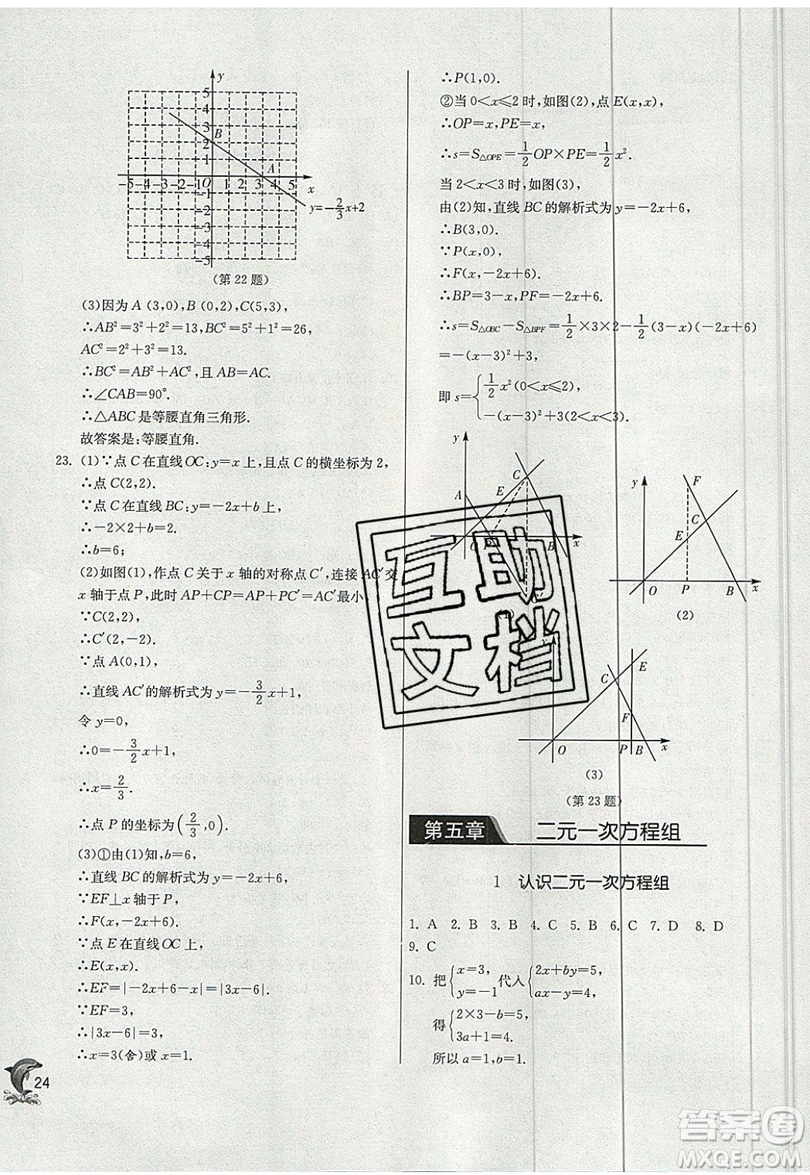 y
5
4
3
2
1
B
A
-5-4-3-2-1 O 1 2 3 4 5 x
-1
-2
-3
-4
-5
y=-2/3x+2
(第22题)
(3)因为A(3,0),B(0,2),C(5,3),
∴AB²=3²+2²=13,BC²=5²+1²=26,
AC²=2²+3²=13.
∴BC²=AB²+AC²,且AB=AC.
∴∠CAB=90°.
∴△ABC是等腰直角三角形.
故答案是:等腰直角.
23. (1)∵点C在直线OC:y=x上,且点C的横坐标为2,
∴点C(2,2).
∵点C在直线BC:y=-2x+b上,
∴-2×2+b=2.
∴b=6;
(2)如图(1),作点C关于x轴的对称点C′,连接AC′交
x轴于点P,此时AP+CP=AP+PC′=AC′最小
∵C(2,2),
∴C′(2,-2).
∵点A(0,1),
∴直线AC′的解析式为y=-3/2x+1,
令y=0,
∴0=-3/2x+1,
∴x=2/3.
∴点P的坐标为(2/3,0).
(3)①由(1)知,b=6,
∴直线BC的解析式为y=-2x+6,
∵EF⊥x轴于P,
∴F(x,-2x+6).
∵点E在直线OC上,
∴E(x,x).
∴EF=|-2x+6-x|=|3x-6|.
∵EF=3,
∴|3x-6|=3.
∴x=3(舍)或x=1.
24
∴P(1,0).
②当0<x≤2时,如图(2),点E(x,x),
∴OP=x,PE=x,
∴s=S△OPE=1/2OP×PE=1/2x².
当2<x<3时,如图(3),
由(2)知,直线BC的解析式为y=-2x+6,
∴B(3,0).
∵P(x,0),
∴F(x,-2x+6).
∴BP=3-x,PF=-2x+6,
∴s=S△OBC-S△BPF=1/2×3×2-1/2(3-x)(-2x+6)
=-(x-3)²+3,
即s={1/2x²(0<x≤2),
-(x-3)²+3(2<x<3).
y
C
E
A
B x
y
F
C
E
O P B x
(2)
E
C
F
O P B x
(3)
(第23题)
互助
文档
第五章 二元一次方程组
1 认识二元一次方程组
1. A 2. B 3. B 4. D 5. C 6. C 7. D 8. D
9. C
10. 把{x=3,y=-1代入{2x+by=5,ax-y=4,
得{2×3-b=5,3a+1=4.
所以a=1,b=1.
答案圈
MXQE.COM